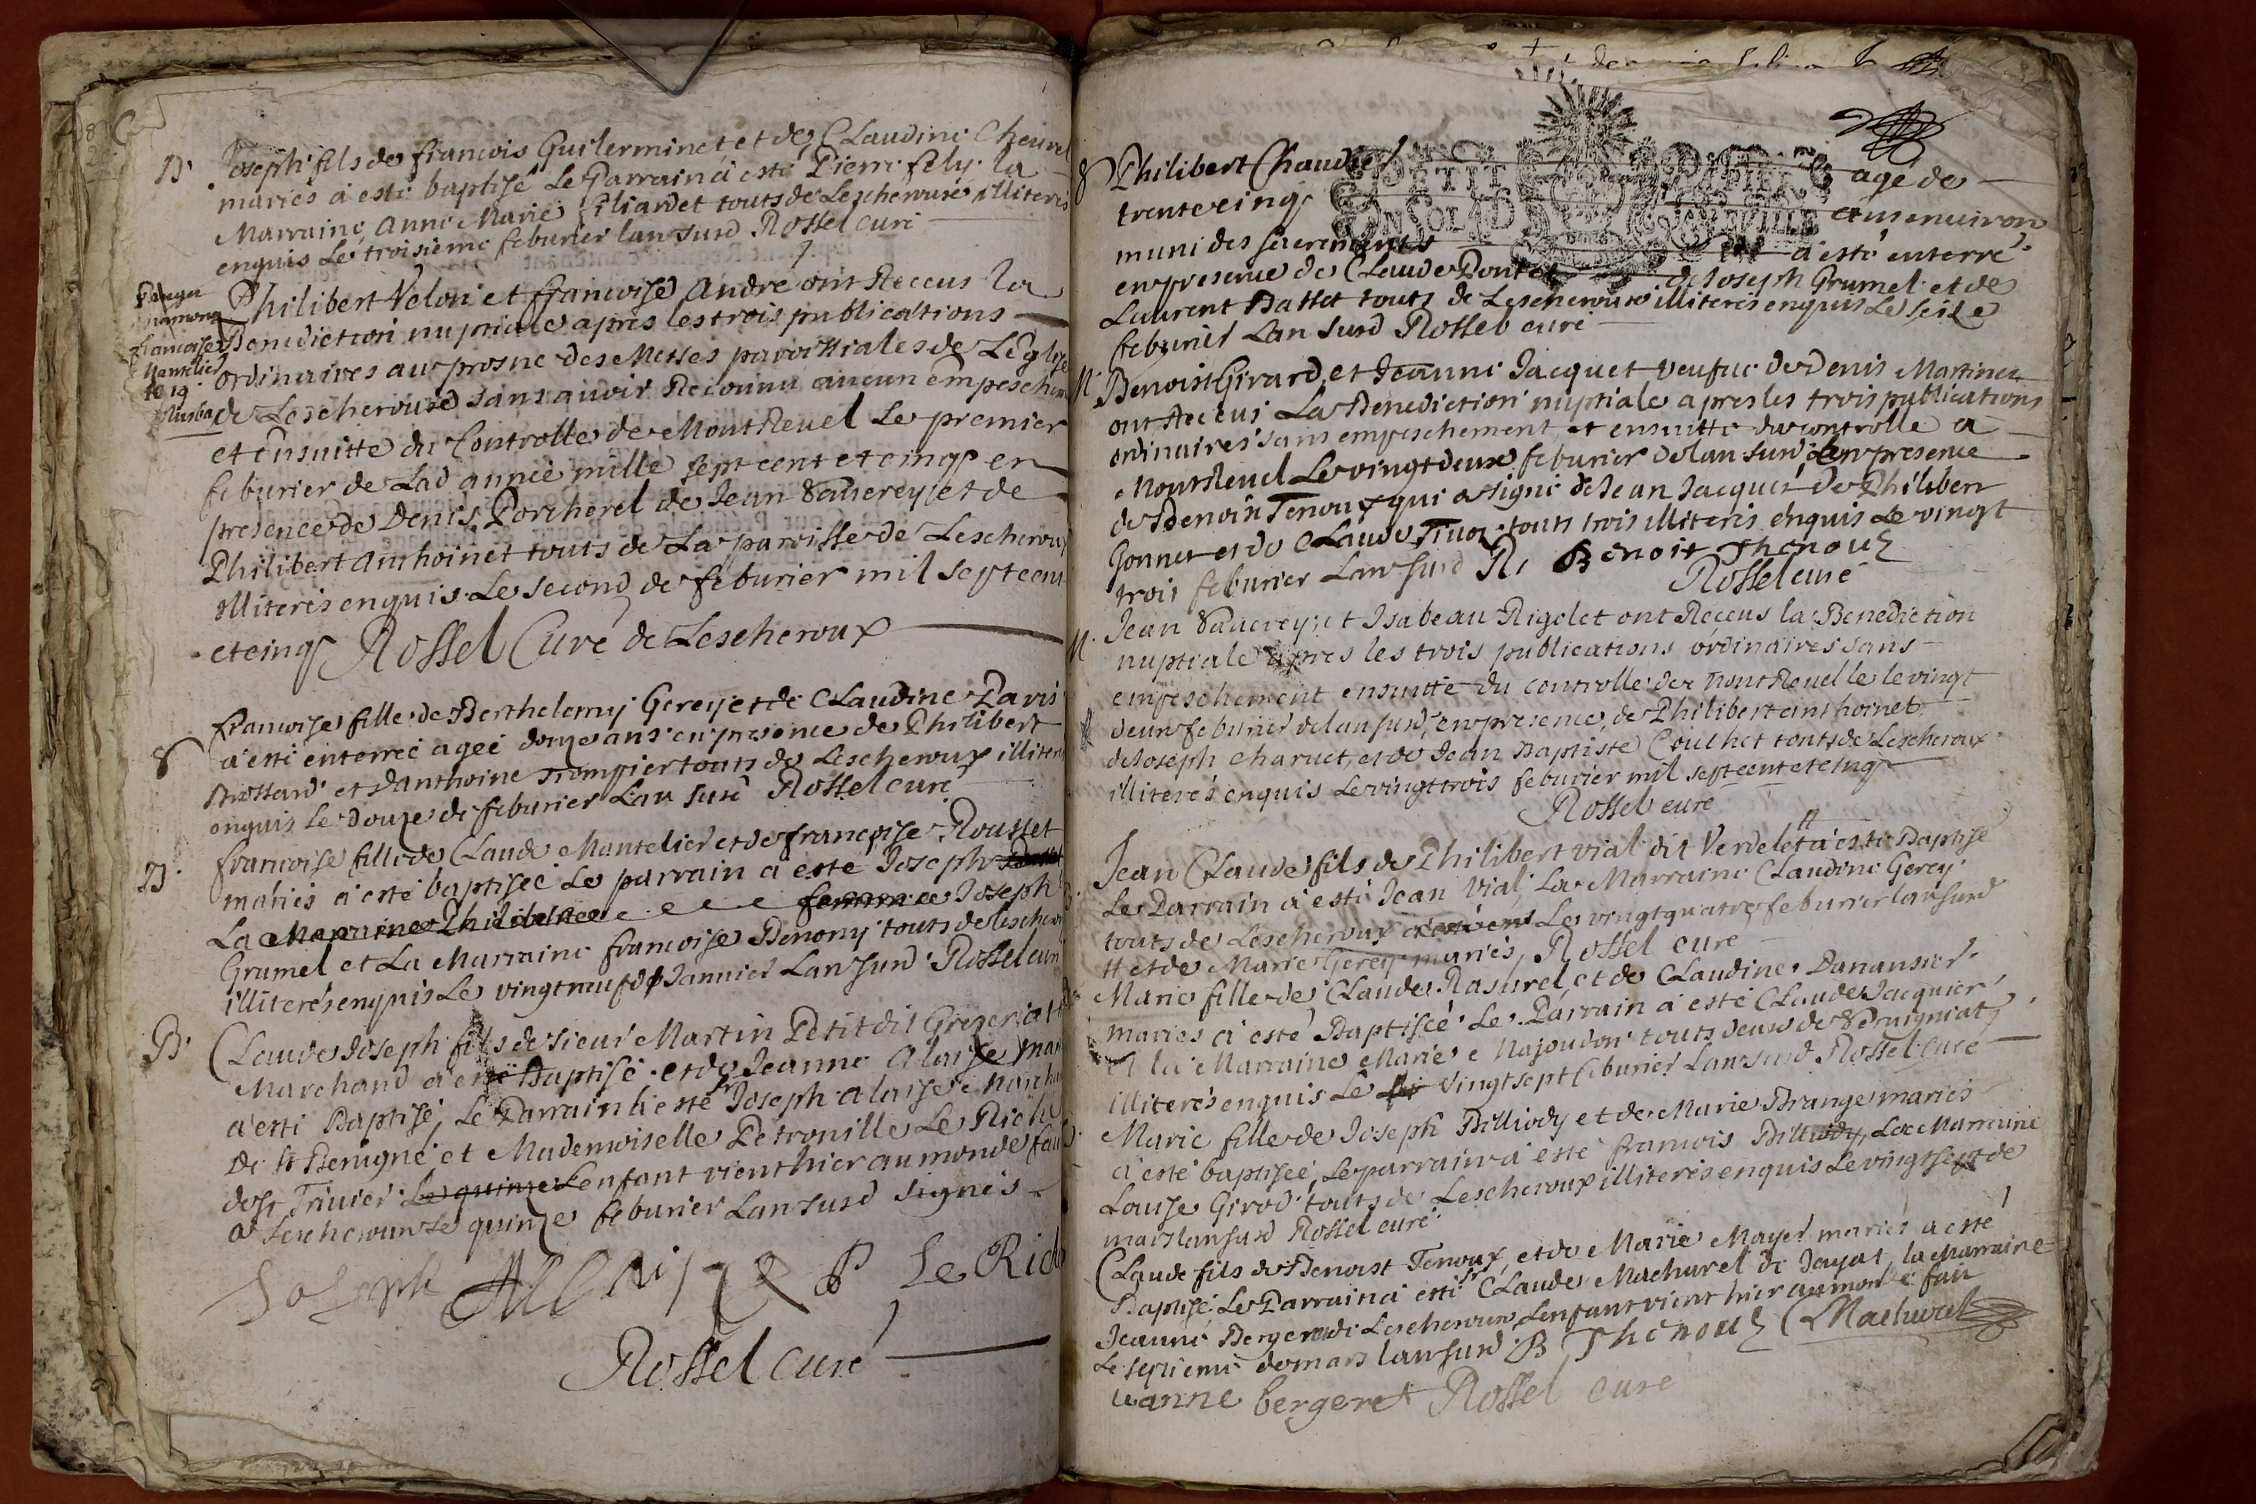 B. Joseph fils de francois Guilerminet et de Claudine Cheurel
mariés a esté baptisé Le Parrain a esté Pierre fely la
Marraine Anne Marie Piliardet touts de Lescheroux illiterés
enquis Le troisieme feburier lan susd Rossel curé
Philibert Velon et francoise Andre ont Receus la
Benediction nuptiale apres les trois publications
ordinaires au prosne des Messes parroissiales de Leglise
de Lescheroux sans avoir Reconnu aucun empeschem
et ensuitte du Controlle de Montrevel Le premier
feburier de Lad année mille sept cent et cinq en
presence de Denis Porcherel de Jean Vauerey et de
Philibert Anthoinet touts de La parroisse de Lescheroux
illiterés enquis Le second de feburier mil sept cent
et cinq Rossel Curé de Lescheroux
francoise fille de Berthelemy Gerey et de Claudine Paris
8 a esté enterreé ageé douze ans en presence de Philibert
Brossard et Danthoine Trompier touts de Lescheroux illiterés
enquis Le douze de feburier Lan susd Rossel curé
B. francoise fille de Claude Mantelier et de francoise Rousset
mariés a esté baptisée Le parrain a esté Joseph
La Marraine Philiberte femme de Joseph
Grumel et La Marraine francoise Benony touts de Lescheroux
illiterés enquis Le vingt neuf de Janvier Lan susd Rossel curé
B. Claude Joseph fils de sieur Martin Petit dit Gregeriat
Marchand a esté Baptisé et de Jeanne Alaise mariés
a esté Baptisé, Le Parrain a esté sr Joseph alaise Marchand
de St Benigne et Mademoiselle Petronille Le Riche
de St Trivier Le quinze Lenfant vient hier au monde fait
a Lescheroux Le quinze feburier Lan susd signés
Joseph Allaise P Le Rich
Rossel curé
8 Philibert Chaudet agé de
PETIT PAPIER
trente cinq ans environ
UN SOL 4 D LA FEUILLE
muni des sacrements a esté enterré
en presence de Claude Pontet de Joseph Grumel et de
Laurent Battet touts de Lescheroux illiterés enquis Le seize
feburier Lan susd Rossel curé
M. Benoist Girard et Jeanne Jacquet veufue de Denis Martinet
ont Receus La Benediction nuptiale apres les trois publications
ordinaires sans empeschement et ensuitte du controlle a
Montrevel Le vingt deux feburier de lan susd en presence
de Benoist Tenoux qui a signé de Jean Jacquet de Philibert
Gonnet et de Claude Tivot touts trois illiterés enquis Le vingt
trois feburier Lan susd Benoit Thenoux
Rossel curé
M. Jean Vauerey et Isabeau Rigolet ont Receus la Benediction
nuptiale apres les trois publications ordinaires sans
empeschement ensuitte du controlle de Montrevel le vingt
deux feburier de lan susd, en presence de Philibert anthoinet
de Joseph Charuet, et de Jean Baptiste Couchet touts de Lescheroux
illiterés enquis Le vingt trois feburier mil sept cent et cinq
Rossel curé
Jean Claude fils de Philibert vial dit Verdelet a esté Baptisé
Le Parrain a esté Jean Vial, La Marraine Claudine Gerey
touts de Lescheroux Le vingt quatre feburier lan susd
tt et de Marie Gerey mariés, Rossel curé
Marie fille de Claude Rasurel et de Claudine Dananster
mariés a esté Baptiseé Le Parrain a esté Claude Jacquier
et la Marraine Marie Najoudon touts deux de
illiterés enquis Le vingt sept feburier Lan susd Rossel curé
Marie fille de Joseph Billiody et de Marie Brange mariés
a esté baptisée, Le parrain a esté francois Billiody, La Marraine
Louise Girod touts de Lescheroux illiterés enquis Le vingt sept de
mars lan susd Rossel curé
Claude fils de Benoist Tenoux, et de Marie Mayer mariés a esté
Baptisé Le Parrain a esté sr Claude Machurel de Jayat la Marraine
Jeanne Bergeret de Lescheroux Lenfant vient hier au monde fait
Le septieme de mars lan susd B Thenoux C Machurel
ieanne bergeret Rossel curé